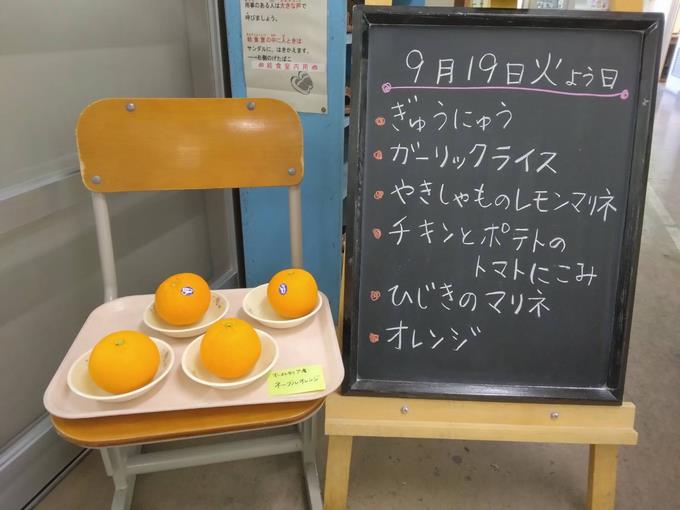 用事のある人は大きな声で
呼びましょう。
給食室の中に入るときは
サンダルに、はきかえます。
→右側のげたばこ
給食室内用
9月19日火よう日
ぎゅうにゅう
ガーリックライス
やきしゃものレモンマリネ
チキンとポテトの
トマトにこみ
ひじきのマリネ
オレンジ
オーストラリア産
ネーブルオレンジ